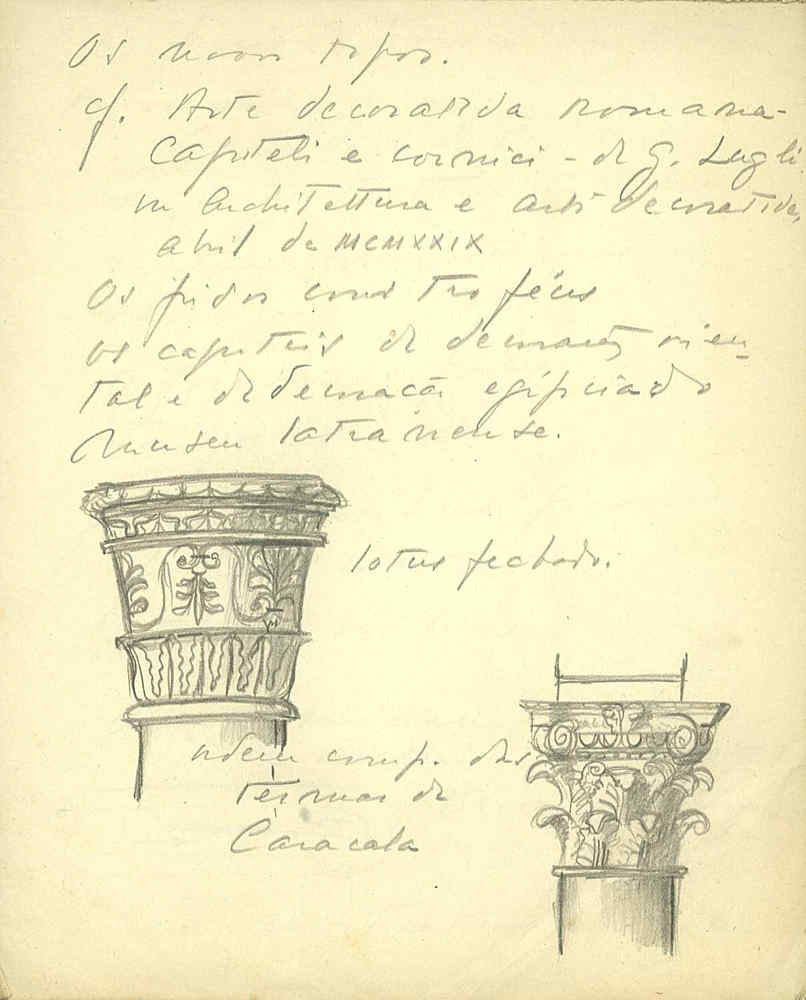 Os novos tipos.
cf. Arte decorativa romana-
Capiteli e cornici - di G. Lugli
in Architettura e arti decorative,
abril de MCMXXIX
Os frisos com troféus
os capiteis de decoração orien-
tal e de decoração egipcia do
Museu lateranense.
lotus fechado.
ordem comp. das
Térmas de
Caracala